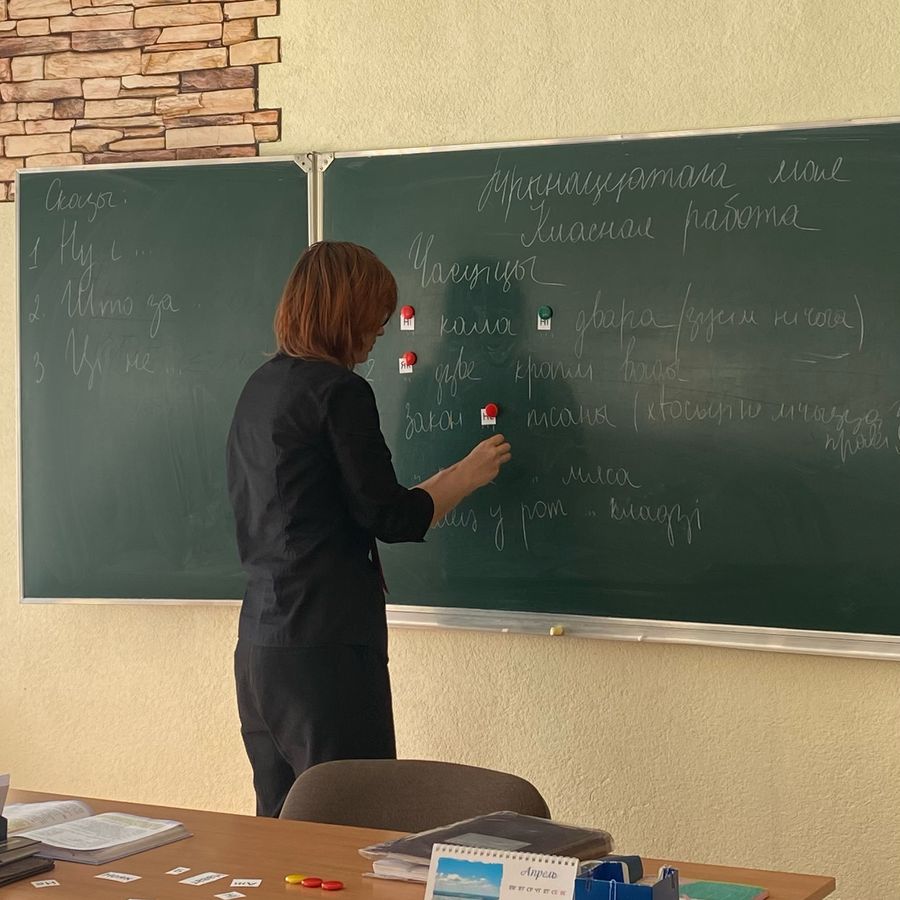 Сказы:
1 Ну і ...
2. Што за ..
3 Ці не ...
Трынаццатага мая
Класная работа
Часціцы
Ні кала Ні двара (зусім нічога)
2 Як дзве кроплі вады
Закон Не пісаны
.. мяса
у рот .. кладзі
Апрель